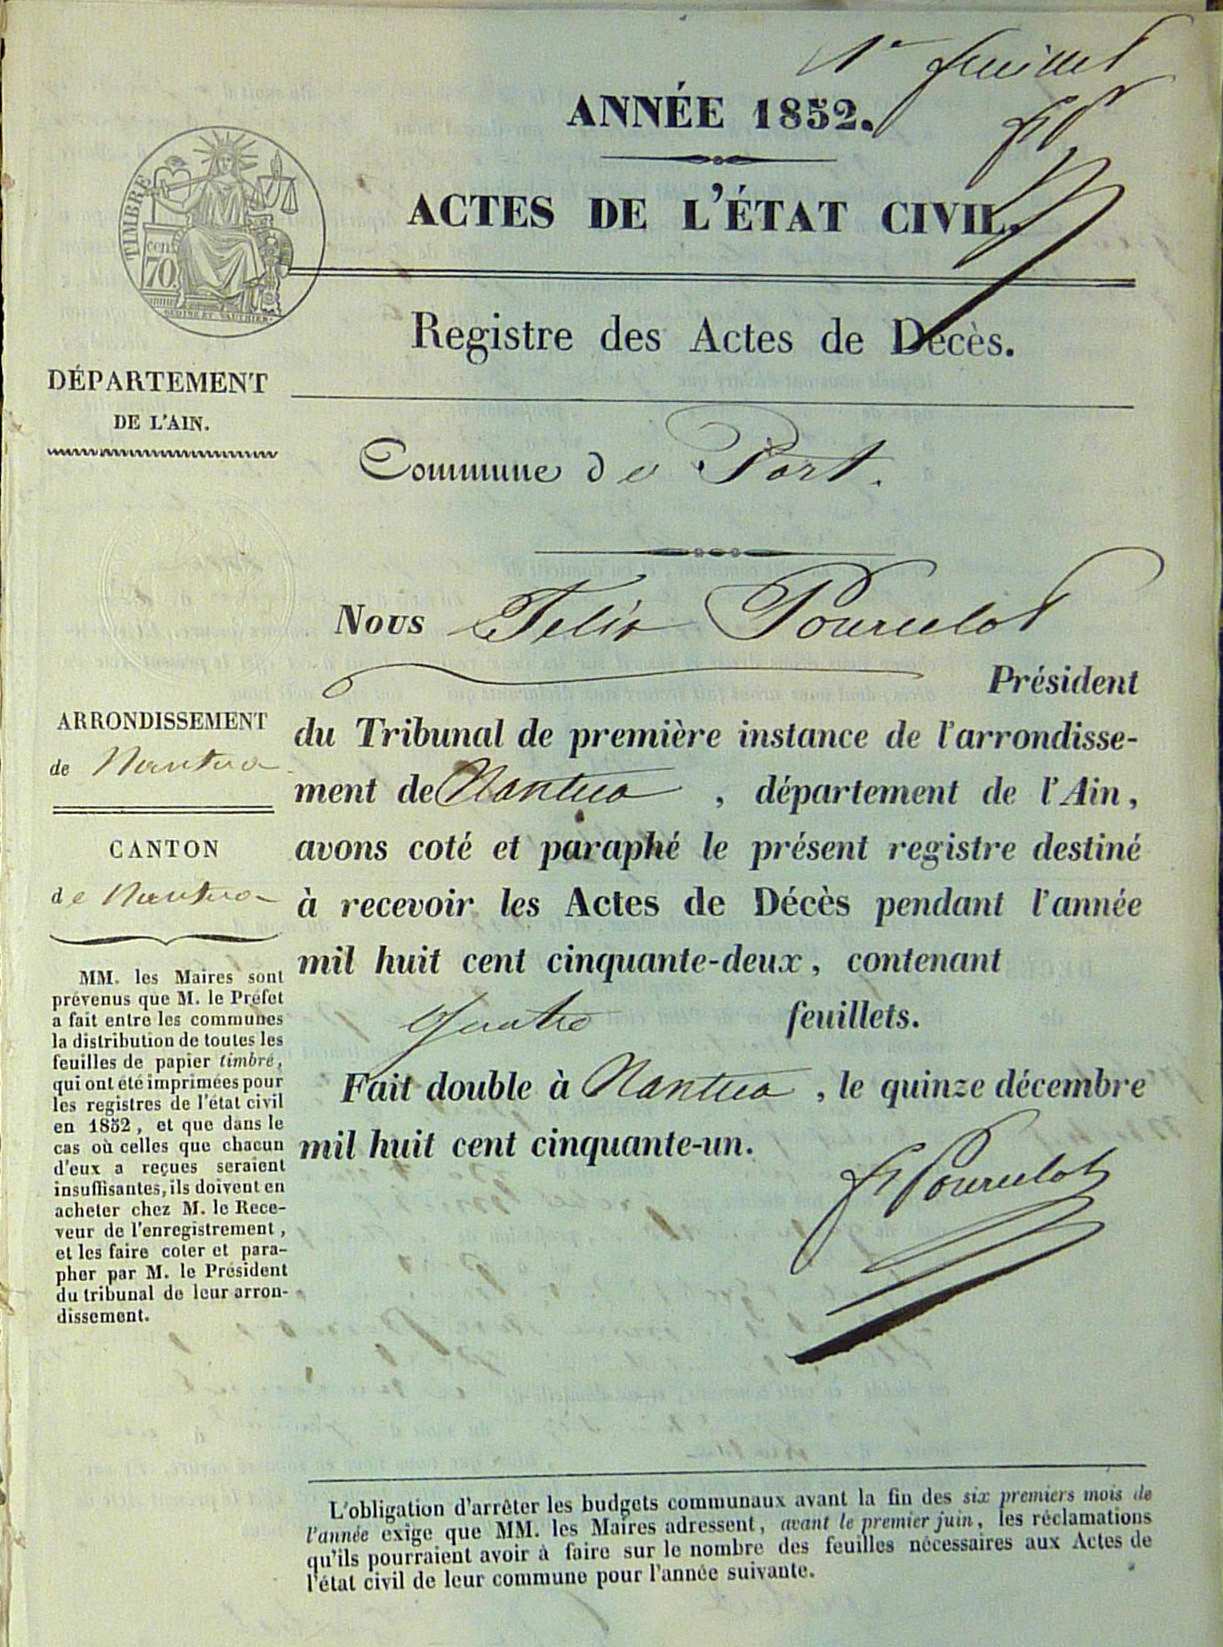 1er feuillet
ANNÉE 1852.
ACTES DE L'ÉTAT CIVIL.
TIMBRE
cen
70
Registre des Actes de Décès.
DÉPARTEMENT
DE L'AIN.
Commune de Port.
Nous Felix Pourcelot
Président
du Tribunal de première instance de l'arrondisse-
ment de Nantua, département de l'Ain,
avons coté et paraphé le présent registre destiné
à recevoir les Actes de Décès pendant l'année
mil huit cent cinquante-deux, contenant
quatre feuillets.
Fait double à Nantua, le quinze décembre
mil huit cent cinquante-un.
Pourcelot
ARRONDISSEMENT
de Nantua
CANTON
de Nantua
MM. les Maires sont
prévenus que M. le Préfet
a fait entre les communes
la distribution de toutes les
feuilles de papier timbré,
qui ont été imprimées pour
les registres de l'état civil
en 1852, et que dans le
cas où celles que chacun
d'eux a reçues seraient
insuffisantes, ils doivent en
acheter chez M. le Rece-
veur de l'enregistrement,
et les faire coter et para-
pher par M. le Président
du tribunal de leur arron-
dissement.
L'obligation d'arrêter les budgets communaux avant la fin des six premiers mois de
l'année exige que MM. les Maires adressent, avant le premier juin, les réclamations
qu'ils pourraient avoir à faire sur le nombre des feuilles nécessaires aux Actes de
l'état civil de leur commune pour l'année suivante.